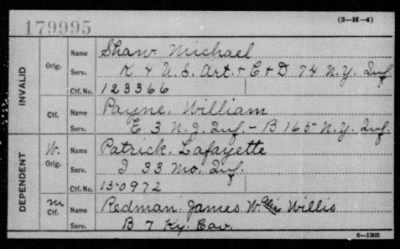 179995
(3-H-4)
INVALID
Orig. Name Shaw Michael
Serv. K 4 U.S. Art. & E & D 74 N.Y. Inf.
Ctf. No. 123366
Ctf. Name Payne. William
Serv. E 3 N.J. Inf. - B 165 N.Y. Inf.
DEPENDENT
W. Orig. Name Patrick. Lafayette
Serv. I 33 Mo. Inf.
Ctf. No. 150972
m Ctf. Name Redman. James W. alias Willis
Serv. B 7 Ky. Cav.